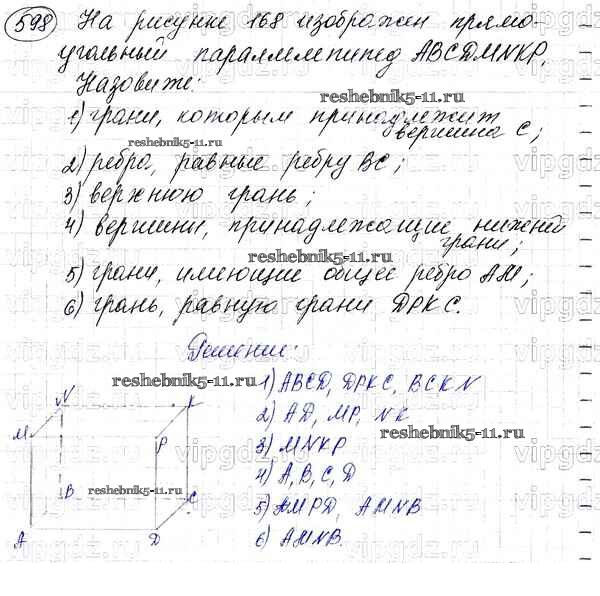 598 На рисунке 168 изображен прямо-
угольный параллелепипед ABCDMNKP.
Назовите:
reshebnik5-11.ru
1) грани, которым принадлежит
вершина C;
reshebnik5-11.ru
2) ребра, равные ребру BC;
3) верхнюю грань;
4) вершины, принадлежащие нижней
грани;
reshebnik5-11.ru
5) грани, имеющие общее ребро AM;
6) грань, равную грани DPKC.
Решение:
reshebnik5-11.ru
1) ABCD, DPKC, BCKN
2) AD, MP, NK
reshebnik5-11.ru
3) MNKP
4) A, B, C, D
reshebnik5-11.ru
5) AMPD, AMNB
6) AMNB.
N K
M P
B C
A D
vipgdz.ru